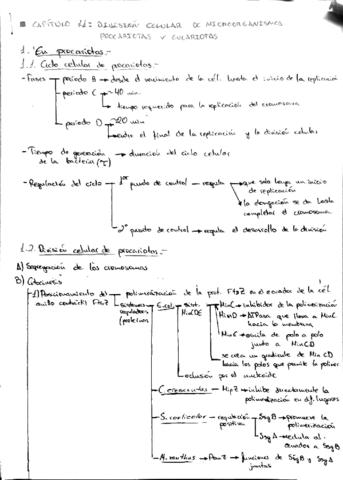 CAPÍTULO 11: DIVISIÓN CELULAR DE MICROORGANISMOS
PROCARIOTAS Y EUCARIOTAS
1. En procariotas.-
1.1. Ciclo celular de procariotas.-
-Fases periodo B → desde el nacimiento de la cél. hasta el inicio de la replicación
periodo C → ~40 min
tiempo requerido para la replicación del cromosoma
periodo D → ~20 min
entre el final de la replicación y la división celular
-Tiempo de generación → duración del ciclo celular
de la bacteria (τ)
-Regulación del ciclo 1er punto de control → regula que solo haya un inicio
de replicación
la elongación se da hasta
completar el cromosoma
2º punto de control → regula el desarrollo de la división
1.2. División celular de procariotas.-
A) Segregación de los cromosomas
B) Citocinesis
1) Posicionamiento del polimerización de la prot. FtsZ en el ecuador de la cél.
anillo contráctil FtsZ sistemas reguladores (proteínas) E. coli sist. MinCDE MinC → inhibidor de la polimerización
MinD → ATPasa que lleva a MinC
hacia la membrana
MinE → oscila de polo a polo
junto a MinCD
se crea un gradiente de MinCD
hacia los polos que permite la polimer
oclusión por el nucleoide
C. crescentus → MipZ → inhibe directamente la
polimerización en dif. lugares
S. coelicolor → regulación positiva SsgB → promueve la
polimerización
SsgA → recluta al
ecuador a SsgB
M. xanthus → PomZ → funciones de SsgB y SsgA
juntas